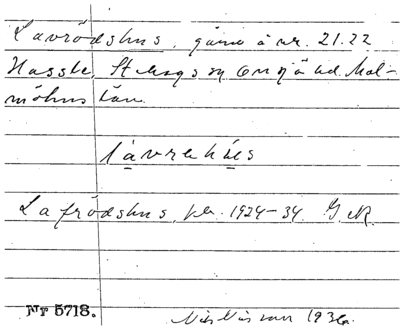 Lavrödshus, gård å nr. 21.22
Hassle, St Magl. sn Onsjö hd. Mal-
möhus län.
lavrehus
Lafrödshus, pb. 1924-34 GK
Nr 5718.
Nils Nilsson 1936